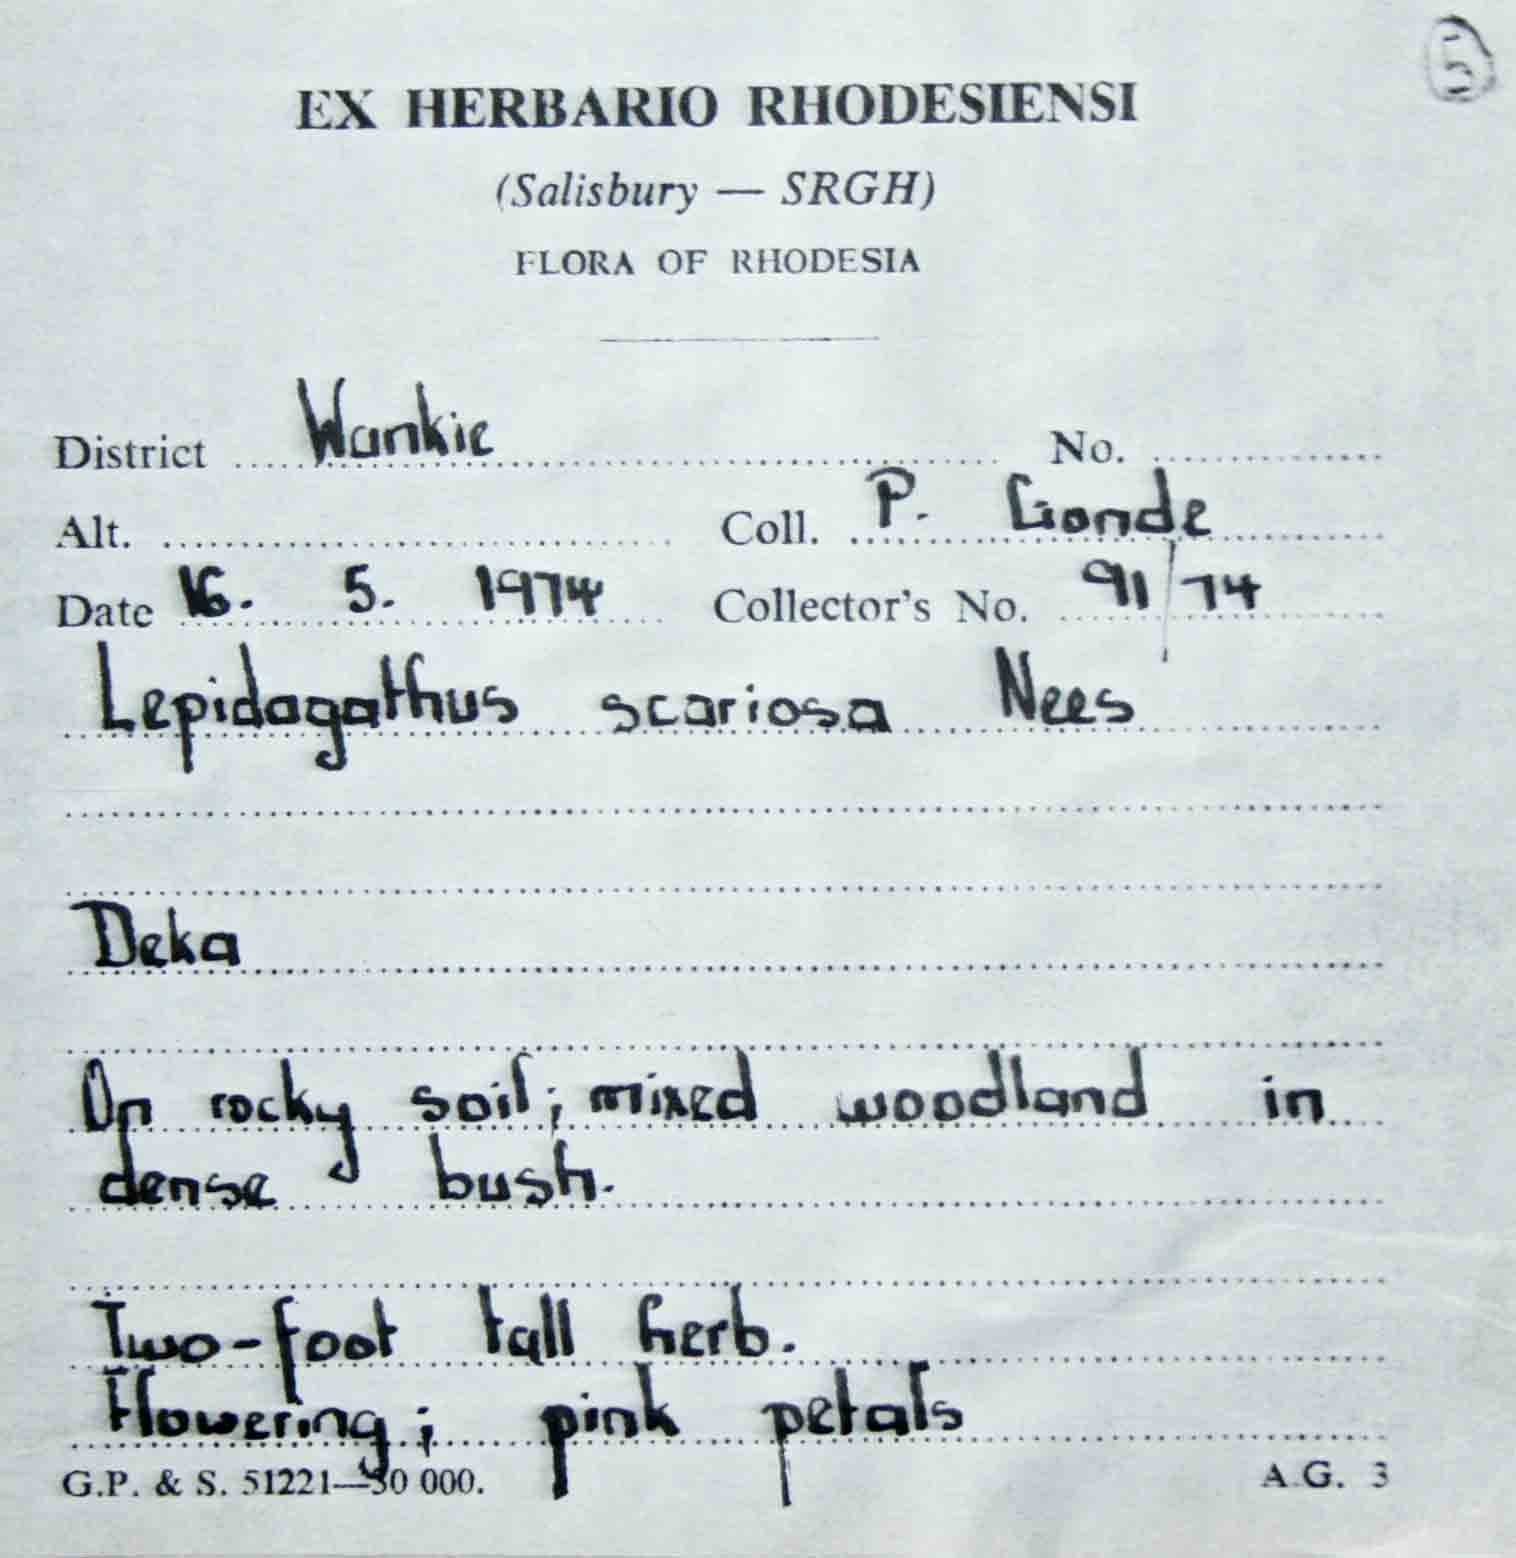 5
EX HERBARIO RHODESIENSI
(Salisbury — SRGH)
FLORA OF RHODESIA
District Wankie No.
Alt. Coll. P. Gonde
Date 16. 5. 1974 Collector's No. 91/74
Lepidagathus scariosa Nees
Deka
On rocky soil; mixed woodland in
dense bush.
Two-foot tall herb.
Flowering; pink petals
G.P. & S. 51221—50 000. A.G. 3